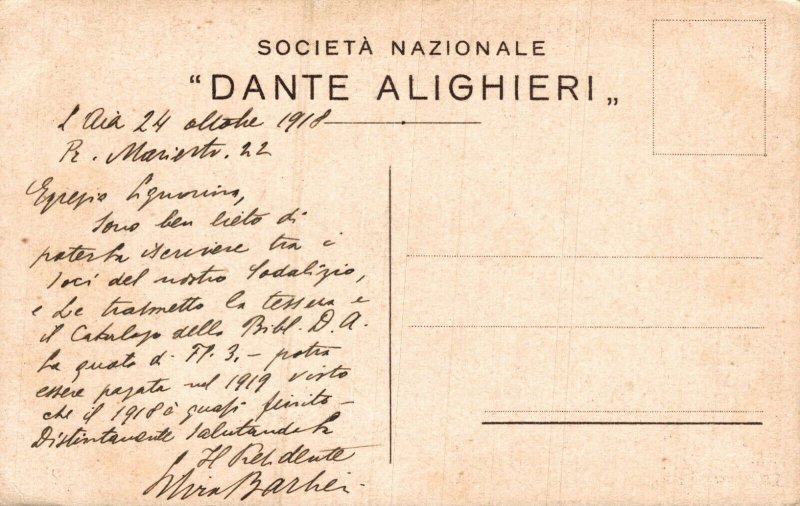 SOCIETÀ NAZIONALE
"DANTE ALIGHIERI„
L'Aia 24 ottobre 1918
Pr. Mariestr. 22
Egregia Signorina,
Sono ben lieto di
poterla iscrivere tra i
soci del nostro Sodalizio,
e Le trasmetto la tessera e
il Catalogo della Bibl. D. A.
La quota di Fl. 3,- potra
essere pagata nel 1919 visto
che il 1918 è quasi finito -
Distintamente salutandola
Il Presidente